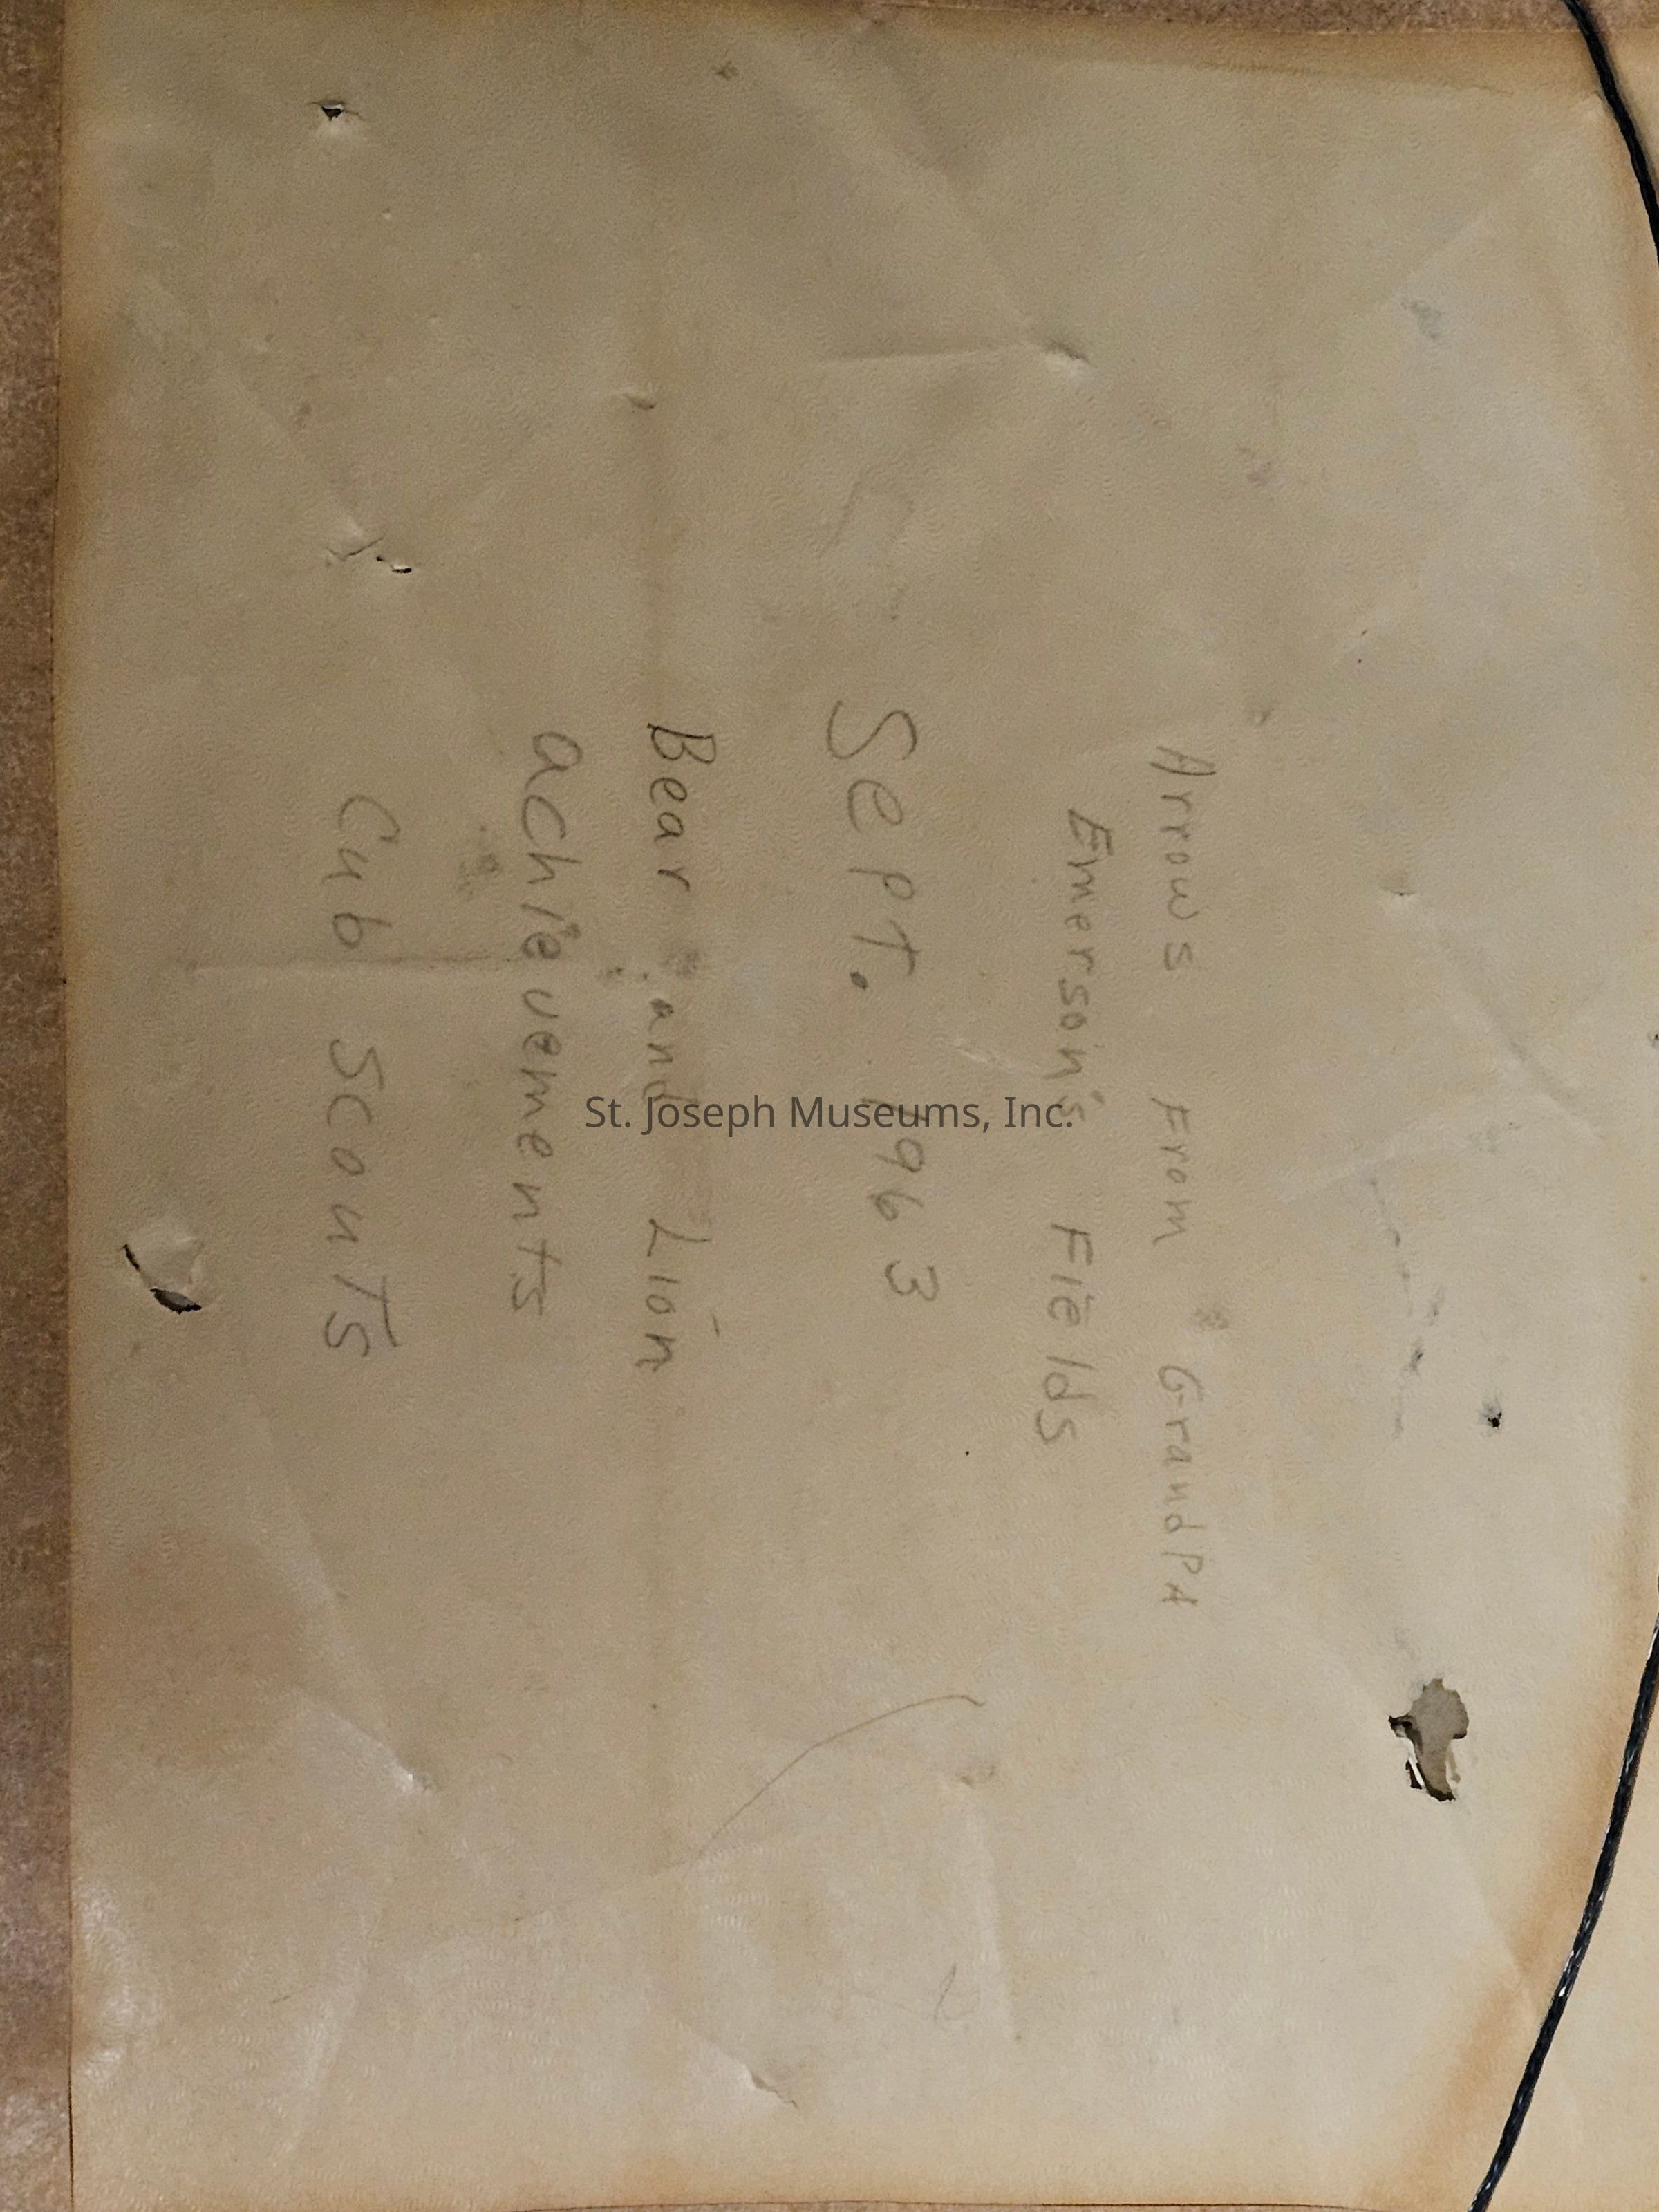 Arrows From GrandPA
Emerson's Fields
Sept. 1963
Bear and Lion
achievements
Cub Scouts
St. Joseph Museums, Inc.